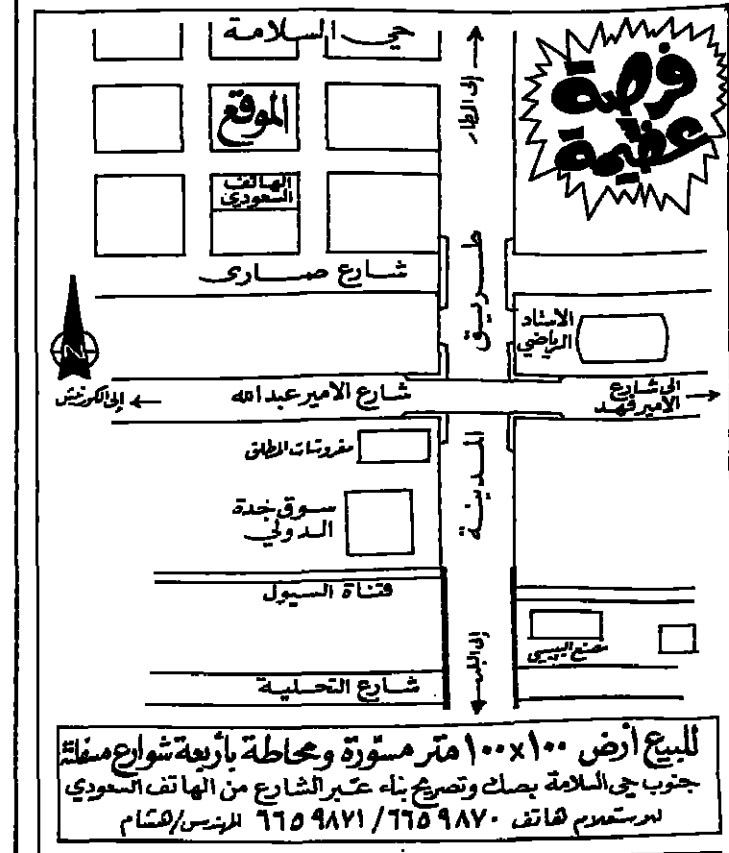 حي السلامة
فرصة
عظيمة
إلى المطار
الموقع
الهاتف
السعودي
شارع صاري
طريق
الاستاد
الرياضي
N
شارع الامير عبدالله
إلى الكورنيش
الى شارع
الامير فهد
مفروشات المطلق
المدينة
سوق جدة
الدولي
قناة السيول
مصنع الببسي
إلى البلد
شارع التحلية
للبيع أرض ١٠٠x١٠٠ متر مسورة ومحاطة بأربعة شوارع مسفلتة
جنوب حي السلامة بصك وتصريح بناء عبر الشارع من الهاتف السعودي
للاستعلام هاتف ٦٦٥٩٨٧٠ / ٦٦٥٩٨٧١ المهندس/هشام